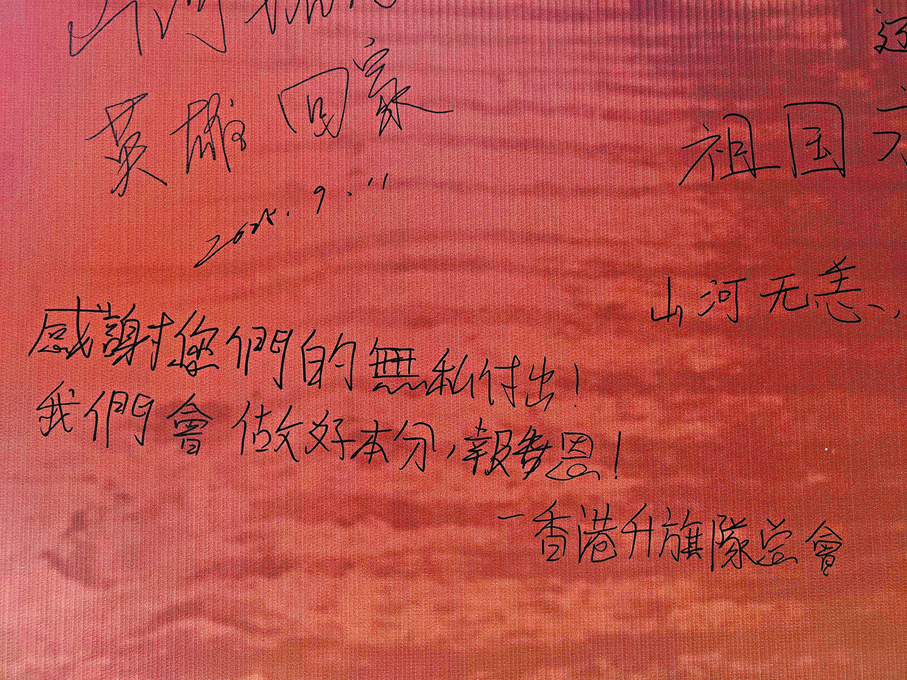 山河
英雄回家
2025.9.11
祖国
山河无恙、
感謝您們的無私付出!
我們會做好本分,報黨恩!
—香港升旗隊總會